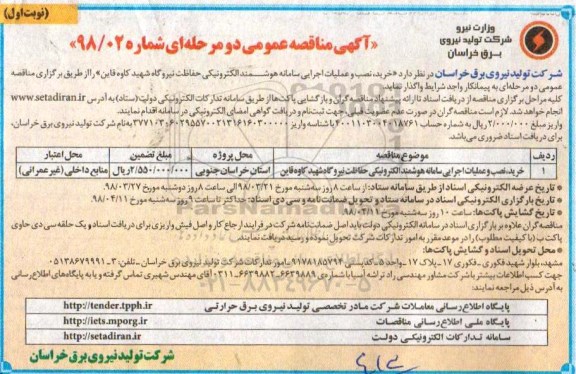 (نوبت اول)
وزارت نیرو
شرکت تولید نیروی
برق خراسان
«آگهی مناقصه عمومی دو مرحله‌ای شماره ۹۸/۰۲»
شرکت تولید نیروی برق خراسان در نظر دارد «خرید، نصب و عملیات اجرایی سامانه هوشمند الکترونیکی حفاظت نیروگاه شهید کاوه قاین» را از طریق برگزاری مناقصه
عمومی دو مرحله‌ای به پیمانکار واجد شرایط واگذار نماید.
کلیه مراحل برگزاری مناقصه از دریافت اسناد تا ارائه پیشنهاد مناقصه گران و بازگشایی پاکت‌ها از طریق سامانه تدارکات الکترونیکی دولت (ستاد) به آدرس www.setadiran.ir
انجام خواهد شد. لازم است مناقصه گران در صورت عدم عضویت قبلی، جهت ثبت نام و دریافت گواهی امضای الکترونیکی
واریز مبلغ ۲/۰۰۰/۰۰۰ ریال به شماره حساب
برای دریافت اسناد ضروری می‌باشد.
ردیف موضوع مناقصه محل پروژه مبلغ تضمین محل اعتبار
۱ خرید، نصب و عملیات اجرایی سامانه هوشمند الکترونیکی حفاظت نیروگاه شهید کاوه قاین استان خراسان جنوبی ۲/۵۵۰/۰۰۰/۰۰۰ ریال منابع داخلی (غیر عمرانی)
* تاریخ عرضه الکترونیکی اسناد از طریق سامانه ستاد: از ساعت ۸ روز سه‌شنبه مورخ ۹۸/۰۳/۲۱ الی ساعت ۸ روز دوشنبه مورخ ۹۸/۰۳/۲۷
* تاریخ بارگزاری اسناد در سامانه ستاد و تحویل ضمانت نامه و سی دی اسناد: حداکثر تا ساعت ۹ روز سه‌شنبه مورخ ۹۸/۰۴/۱۱
* تاریخ گشایش پاکت‌ها: ساعت ۱۰ روز سه‌شنبه
مناقصه گران علاوه بر بارگزاری اسناد در سامانه تدارکات الکترونیکی دولت باید اصل ضمانتنامه شرکت در فرایند ارجاع کار و اصل فیش واریزی برای دریافت اسناد و یک حلقه سی دی حاوی
پاکت ب (با کیفیت مطلوب) را در موعد مقرر به امور تدارکات شرکت تحویل نموده و رسید دریافت نمایند.
* محل تحویل اسناد و گشایش پاکت‌ها:
مشهد، بلوار شهید فکوری - فکوری ۱۷ - پلاک ۱۷ - واحد ۵ - کدپستی ۹۱۷۸۱۸۵۷۱۴ امور تدارکات شرکت تولید نیروی برق خراسان - تلفن: ۳-۰۵۱۳۸۶۷۹۹۹۱
جهت کسب اطلاعات بیشتر با شرکت مشاور مهندسی راد ترانه آسیا با شماره‌ی آقای مهندس شهیری تماس گرفته و یا به پایگاه‌های اطلاع رسانی
به آدرس ذیل مراجعه نمایند:
پایگاه اطلاع رسانی معاملات شرکت مادر تخصصی تولید نیروی برق حرارتی http://tender.tpph.ir
پایگاه ملی اطلاع رسانی مناقصات http://iets.mporg.ir
سامانه تدارکات الکترونیکی دولت http://setadiran.ir
شرکت تولید نیروی برق خراسان